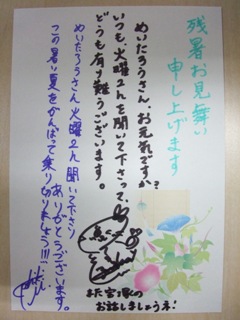 残暑お見舞い
申し上げます
めいたろうさん、お元気ですか?
いつも火曜2人を聞いて下さって、
どうも有り難うございます。
また宮塚の
お話しましょうネ!
めいたろうさん火曜2人聞いて下さり
ありがとうございます。
この暑い夏をがんばって乗り切りましょう!!!